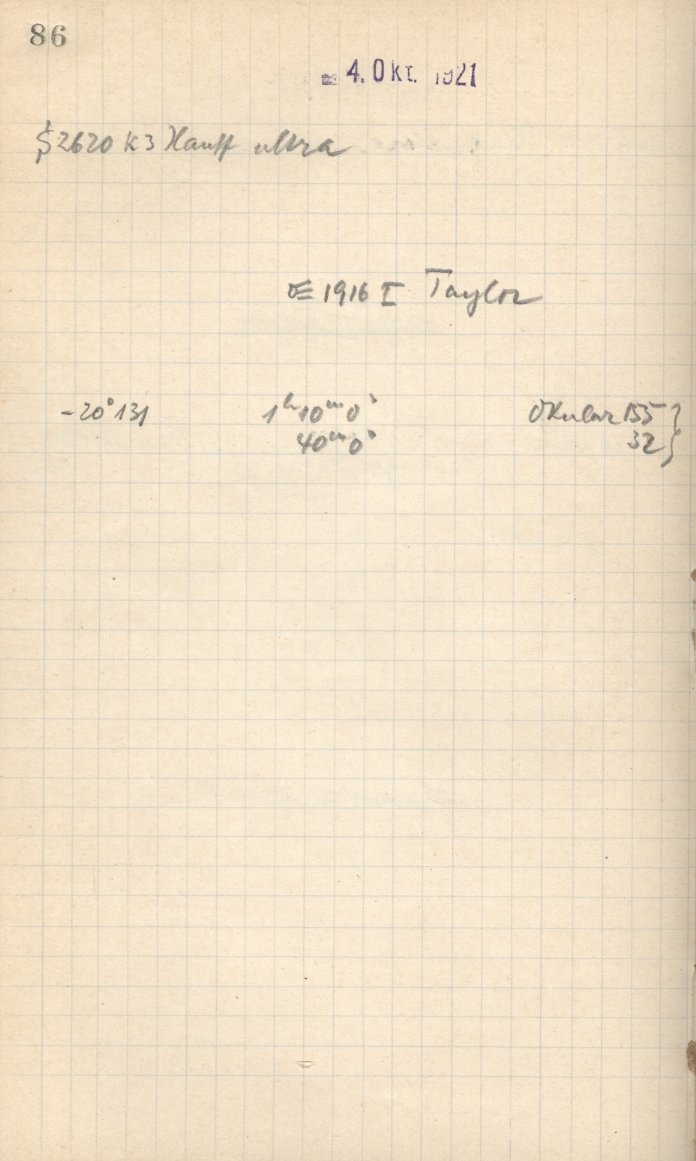 86
4. Okt. 1921
2620 K3 Hauff ultra
1916 I Taylor
-20° 131 1ʰ10ᵐ0ˢ Okular 155 }
40ᵐ0ˢ 32 }